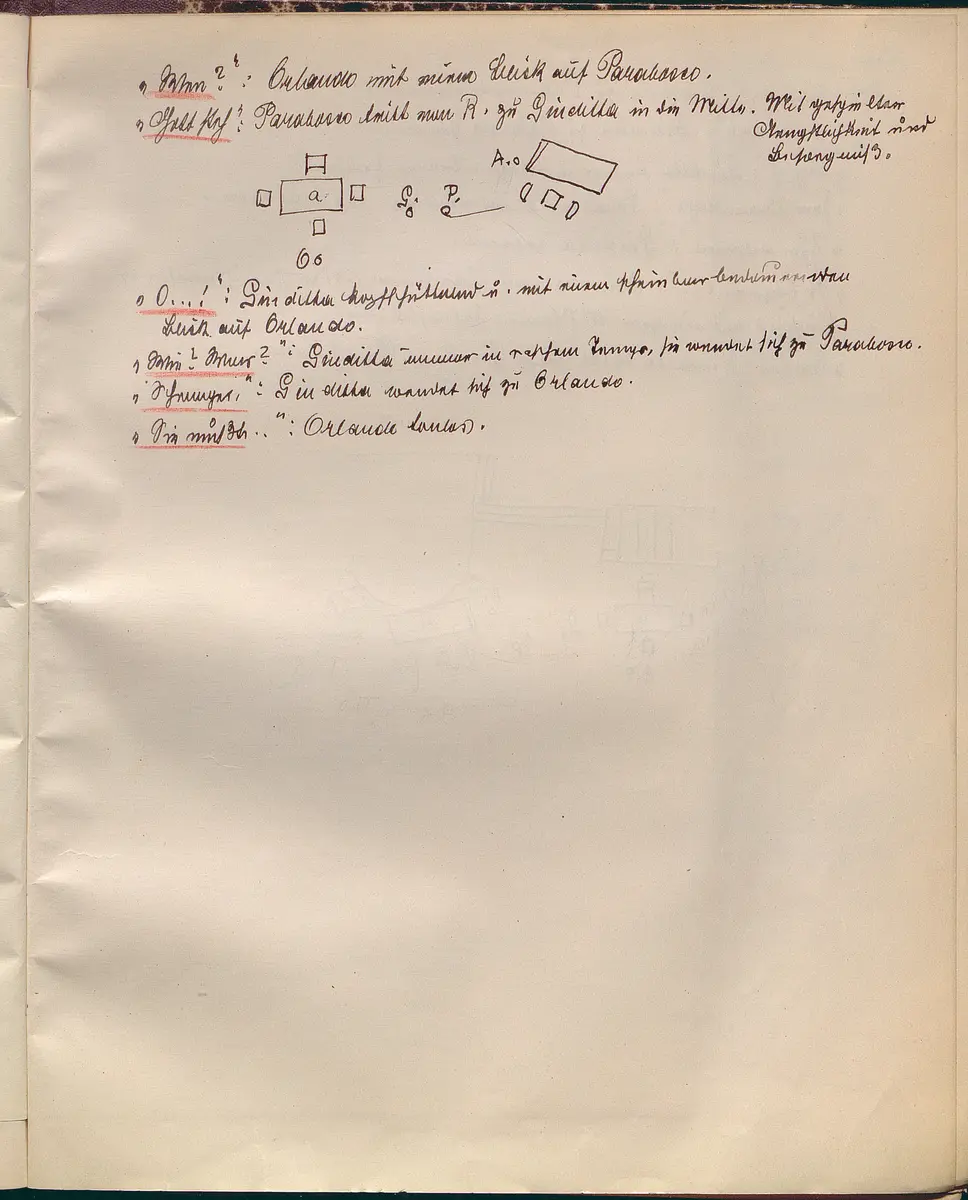 „Wen?“: Orlando mit einem Blick auf Parabosco.
„Gebt: Parabosco tritt von R. zu Giuditta in die Mitte. Mit gespielter
Aengstlichkeit und
Besorgniß.
A.
a.
G. P.
O
„O...!“: Giuditta kopfschüttelnd u. mit einem scheinbar bedauernden
Blick auf Orlando.
„Wie? Was?“: Giuditta immer in raschem Tempo, sie wendet sich zu Parabosco.
„Schweiget,“: Giuditta wendet sich zu Orlando.
„Sie müßt..“: Orlando tonlos.